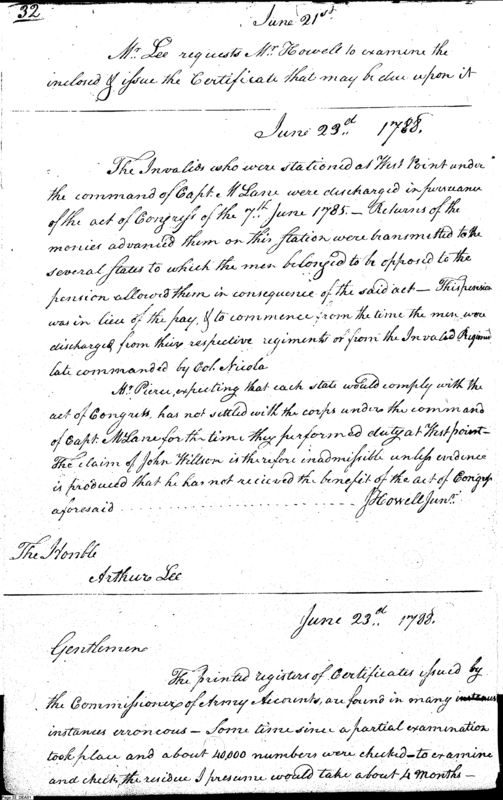 32
June 21st
Mr. Lee requests Mr. Howell to examine the
inclosed & issue the Certificate that may be due upon it
June 23d. 1788.
The Invalids who were stationed at West Point under
the command of Capt. McLane were discharged in pursuance
of the act of Congress of the 7th June 1785 — Returns of the
monies advanced them on this station were transmitted to the
several States to which the men belonged to be opposed to the
pension allowed them in consequence of the said act — This pension
was in lieu of the pay, & to commence from the time the men were
discharged from their respective regiments or from the Invalid Regiment
late commanded by Col. Nicola
Mr. Pierce, expecting that each state would comply with the
act of Congress, has not settled with the corps under the command
of Capt. McLane for the time they performed duty at West point —
The claim of John Willson is therefore inadmissible unless evidence
is produced that he has not recieved the benefit of the act of Congress
aforesaid J Howell Junr.
The Honble
Arthur Lee
June 23d. 1788.
Gentlemen
The printed registers of Certificates issued by
the Commissioner of Army Accounts, are found in many instances
instances erroneous — Some time since a partial examination
took place and about 40,000 numbers were checked — to examine
and check the residue I presume would take about 4 months —